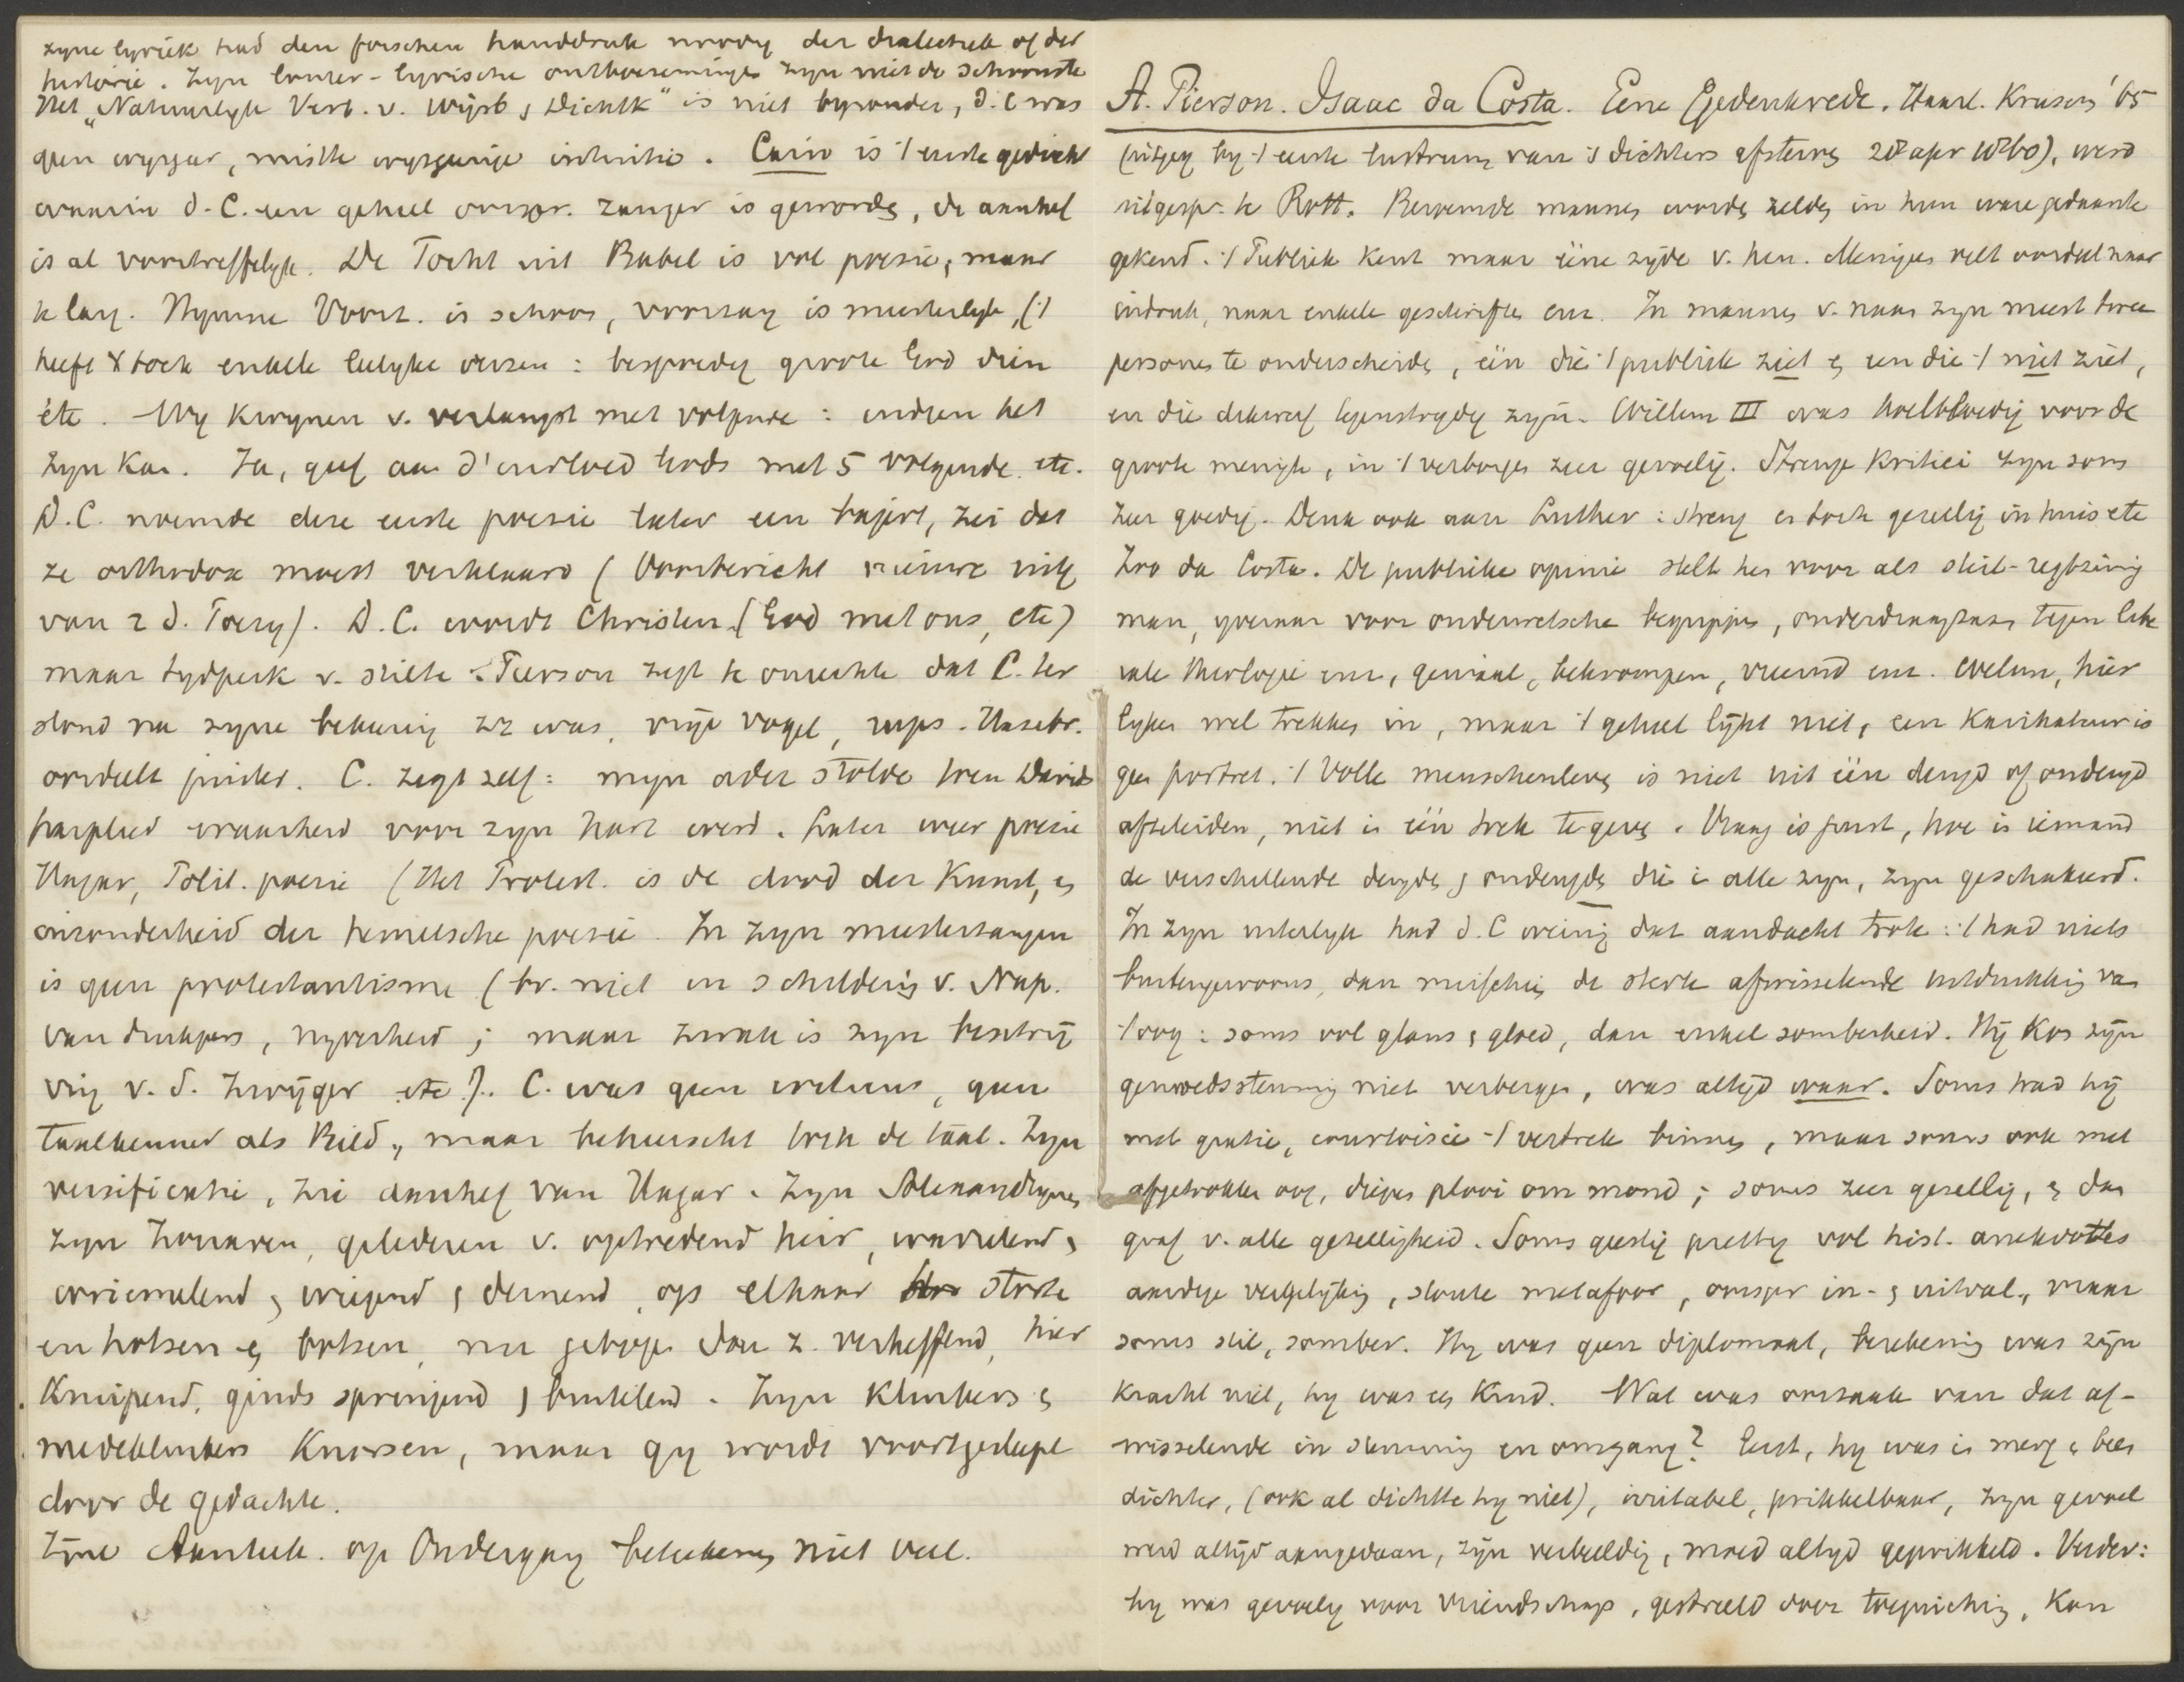 zyne lyriek had den forschen handdruk noodig der dialectiek of der
historie. Zyn louter-lyrische ontboezemingen zyn niet de schoonste
Het „Natuurlyk Verb. v. Wijsb & Dichtk" is niet byzonder, d. C was
geen wysgeer, miste wysgeerige intuitie. Cain is 't eerste gedicht
waarin d. C. een geheel oorspr. zanger is geworden, de aanhef
is al voortreffelyk. De Tocht uit Babel is vol poesie, maar
te lang. Hymne Voorz. is schoon, voorzang is meesterlyk, ('t
heeft toch enkele leelyke verzen: bespoedig groote God dien
etc. Wy kwynen v. verlangst met volgende: indien het
zyn kan. Ja, geef aan d' invloed Gods met 5 volgende etc.
D. C. noemde deze eerste poesie later een bajert, zei dat
ze orthodox moest verklaard (Voorbericht nieuwe uitg
van 2 d. Poezy). D. C. wordt Christen (God met ons, etc)
maar tydperk v. stilte. Pierson zegt te onrechte dat C. ter
stond na zyne bekeering was, vrije vogel, rups. Hasebr.
oordeelt juister. C. zegt zelf: myn ader stolde toen Davids
harplied waarheid voor zyn hart werd. Later weer poesie
Hagar, Polit. poesie (Het Protest. is de dood der Kunst, en
inzonderheid der hemelsche poesie. In zyn meesterzangen
is geen protestantisme (br. niet in schildering v. Nap.
van drukpers, nyverheid; maar zwak is zyn beschrij
ving v. d. Zwijger etc). C. was geen geen
taalkenner als Bild., maar beheerscht toch de taal. Zyn
versificatie, zie aanhef van Hagar. Zyn Alexandrynen
zyn Zouaven, gelederen v. optredend heir, wandelend,
wriemelend, wiegend & deinend, op elkaar storte
en hotsen en botsen, nu gebogen dan z. verheffend, hier
kruipend, ginds springend & buitelend. Zyn klinkers en
medeklinkers knarsen, maar gy wordt voortgesleept
door de gedachte.
Zyne Aanteek. op Ondergang beteekenen niet veel.
A. Pierson. Isaac da Costa. Eene Gedenkrede. Haarl. Kruseman '65
(uitgeg by 't eerste lustrum van 's dichters afsterven 28 apr 1860), werd
uitgespr. te Rott. Beroemde mannen worden zelden in hun ware gedaante
gekend. 't Publiek kent maar ééne zyde v. hen. Menigeen velt oordeel naar
indruk, naar enkele geschriften enz. In mannen v. naam zyn meest twee
personen te onderscheiden, één die 't publiek ziet en een die 't niet ziet,
en die dikwerf tegenstrydig zyn. Willem III was koelbloedig voor de
groote menigte, in 't verborgen zeer gevoelig. Strenge kritici zyn soms
zeer goedig. Denk ook aan Luther: streng en toch gezellig in huis etc
Zoo da Costa. De publieke opinie stelt hem voor als steil-regtzinnig
man, yveraar voor ouderwetsche begrippen, onverdraagzaam tegen libe
rale theologie enz, geniaal, bekrompen, vreemd enz. Welnu, hier
lyken wel trekken in, maar 't geheel lijkt niet, een karikatuur is
geen portret. 't Volle menschenleven is niet uit één deugd of ondeugd
afteleiden, niet in één trek te geven. Vraag is juist, hoe in iemand
de verschillende deugden & ondeugden die in alle zyn, zyn geschakeerd.
In zyn uiterlyk had d. C weinig dat aandacht trok: 't had niets
buitengewoons, dan misschien de sterk afwisselende uitdrukking van
't oog: soms vol glans & gloed, dan enkel somberheid. Hij kon zijn
gemoedsstemming niet verbergen, was altijd waar. Soms trad hij
met gratie, courtoisie 't vertrek binnen, maar soms ook met
afgetrokken oog, diepen plooi om mond; soms zeer gezellig, en dan
graf v. alle gezelligheid. Soms geestig prettig vol hist. anekdotes
aardige vergelijking, stoute metafoor, oorspr in- & uitval., maar
soms stil, somber. Hy was geen diplomaat, berekening was zijn
kracht niet, hy was een kind. Wat was oorzaak van dat af-
wisselende in stemming en omgang? Eerst, hy was in merg & been
dichter, (ook al dichtte hy niet), irritabel, prikkelbaar, zyn gevoel
werd altijd aangedaan, zijn verbeelding, werd altyd geprikkeld. Verder:
hy was gevoelig voor vriendschap, gestreeld door toejuiching. Kon